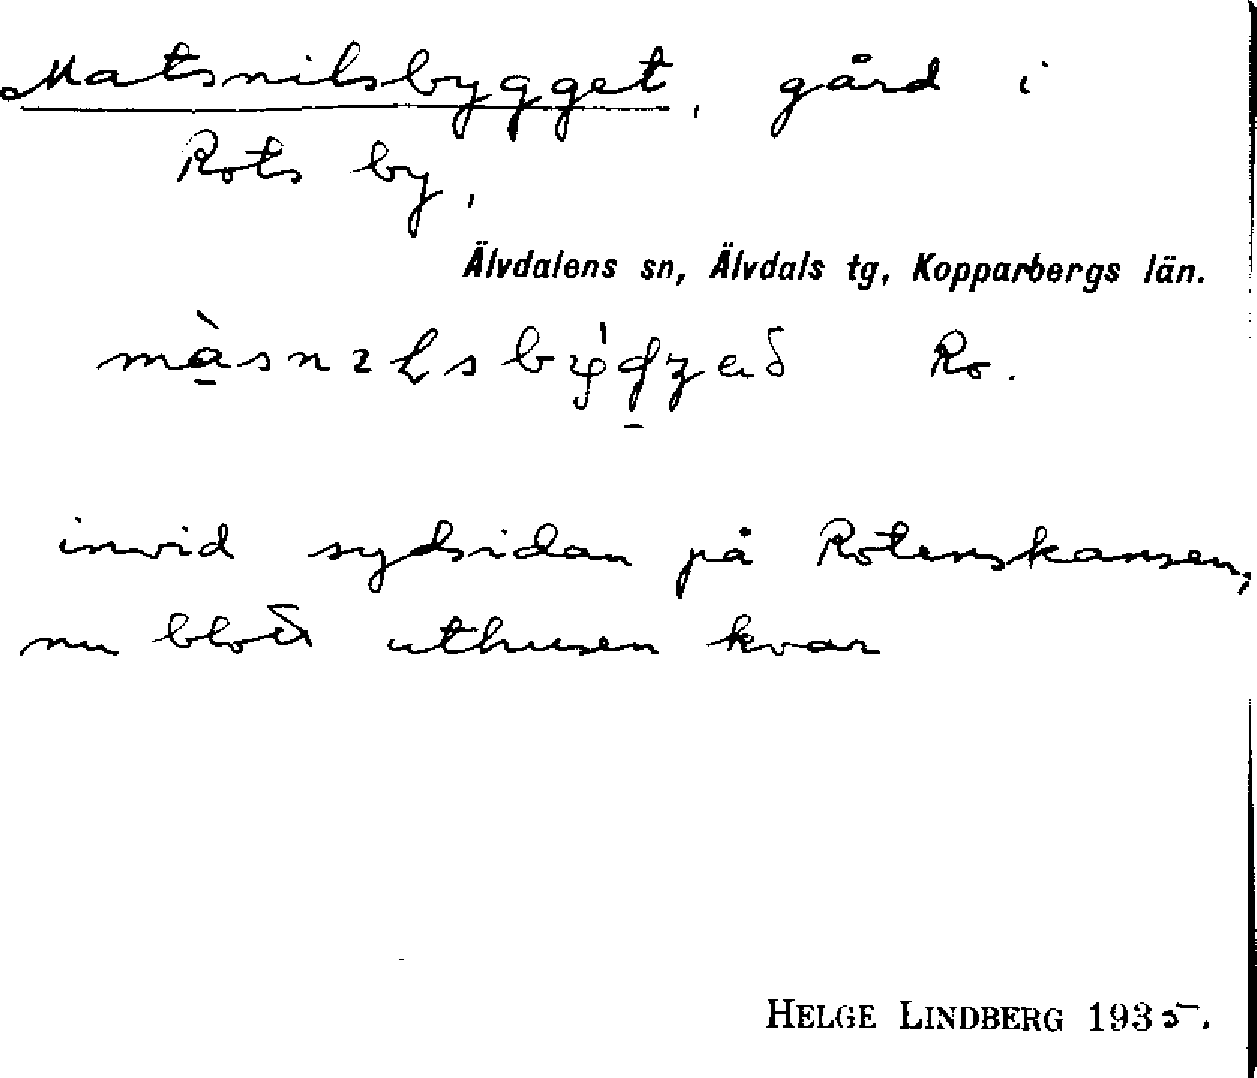 Matsnilsbygget, gård i
Rots by,
Älvdalens sn, Älvdals tg, Kopparbergs län.
Ro.
invid sydsidan på Rotenskansen,
nu blott uthusen kvar
HELGE LINDBERG 1935.